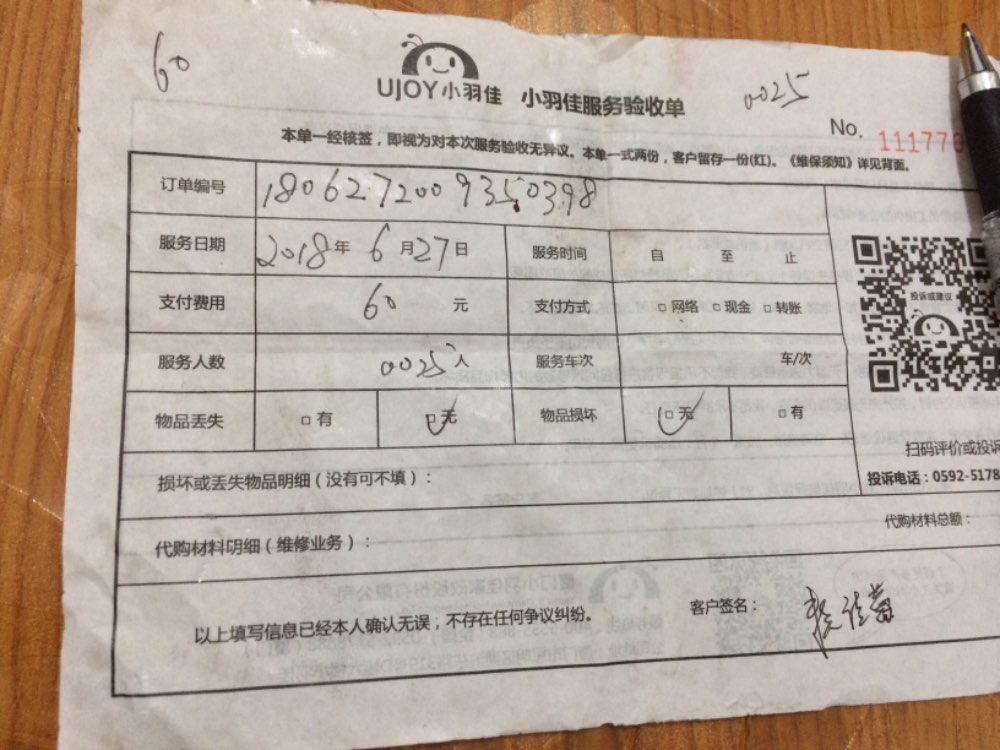 60
UJOY小羽佳 小羽佳服务验收单
0025
No. 111776
本单一经核签，即视为对本次服务验收无异议。本单一式两份，客户留存一份(红)。《维保须知》详见背面。
订单编号 1806272009350398
服务日期 2018年 6月27日 服务时间 自 至 止
支付费用 60 元 支付方式 □网络 □现金 □转账
服务人数 0025人 服务车次 车/次
物品丢失 □有 □无 物品损坏 □无 □有
投诉或建议
扫码评价或投诉
投诉电话：0592-5178
损坏或丢失物品明细（没有可不填）：
代购材料明细（维修业务）： 代购材料总额：
以上填写信息已经本人确认无误，不存在任何争议纠纷。 客户签名：